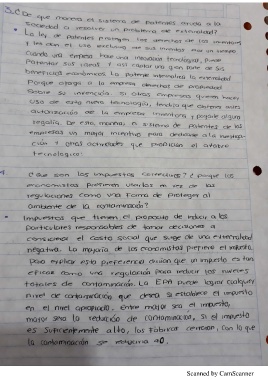 3. ¿De que manera el sistema de patentes ayuda a la
sociedad a resolver un problema de externalidad?
• La ley de patentes protegen los derechos de los inventores
y les dan el uso exclusivo de sus inventos por un tiempo
Cuando una empresa hace una innovación tecnológica, puede
Patentar sus ideas y así captar una gran parte de sus
beneficios económicos. La patente internaliza la externalidad
Porque otorga a la empresa derechos de propiedad
sobre su invención. Si otras empresas quieren hacer
uso de esta nueva tecnología, tendría que obtener
autorización de la empresa inventora, y pagarle alguna
regalía. De esta manera, el sistema de patentes da
empresas un mayor incentivo para dedicarse a la investiga-
ción y otras actividades que propician el avance
tecnológico.
4. ¿Que son los impuestos correctivos? ¿Porque los
economistas prefieren usarlos en vez de las
regulaciones como una forma de proteger al
ambiente de la contaminación?
• Impuestos que tienen el proposito de inducir a los
particulares responsables de tomar decisiones a
considerar el costo social que surge de una externalidad
negativa. La mayoría de los economistas prefiere el impuesto,
para explicar esta preferencia dirían que un impuesto es tan
eficaz como una regulación para reducir los niveles
totales de contaminación. La EPA puede lograr cualquier
nivel de contaminación que desea si establece el impuesto
en el nivel apropiado. Entre mayor sea el impuesto,
mayor será la reducción de contaminación, Si el impuesto
es suficientemente alto, las fábricas cerrarán, con lo que
la contaminación se reduciría a 0.
Scanned by CamScanner